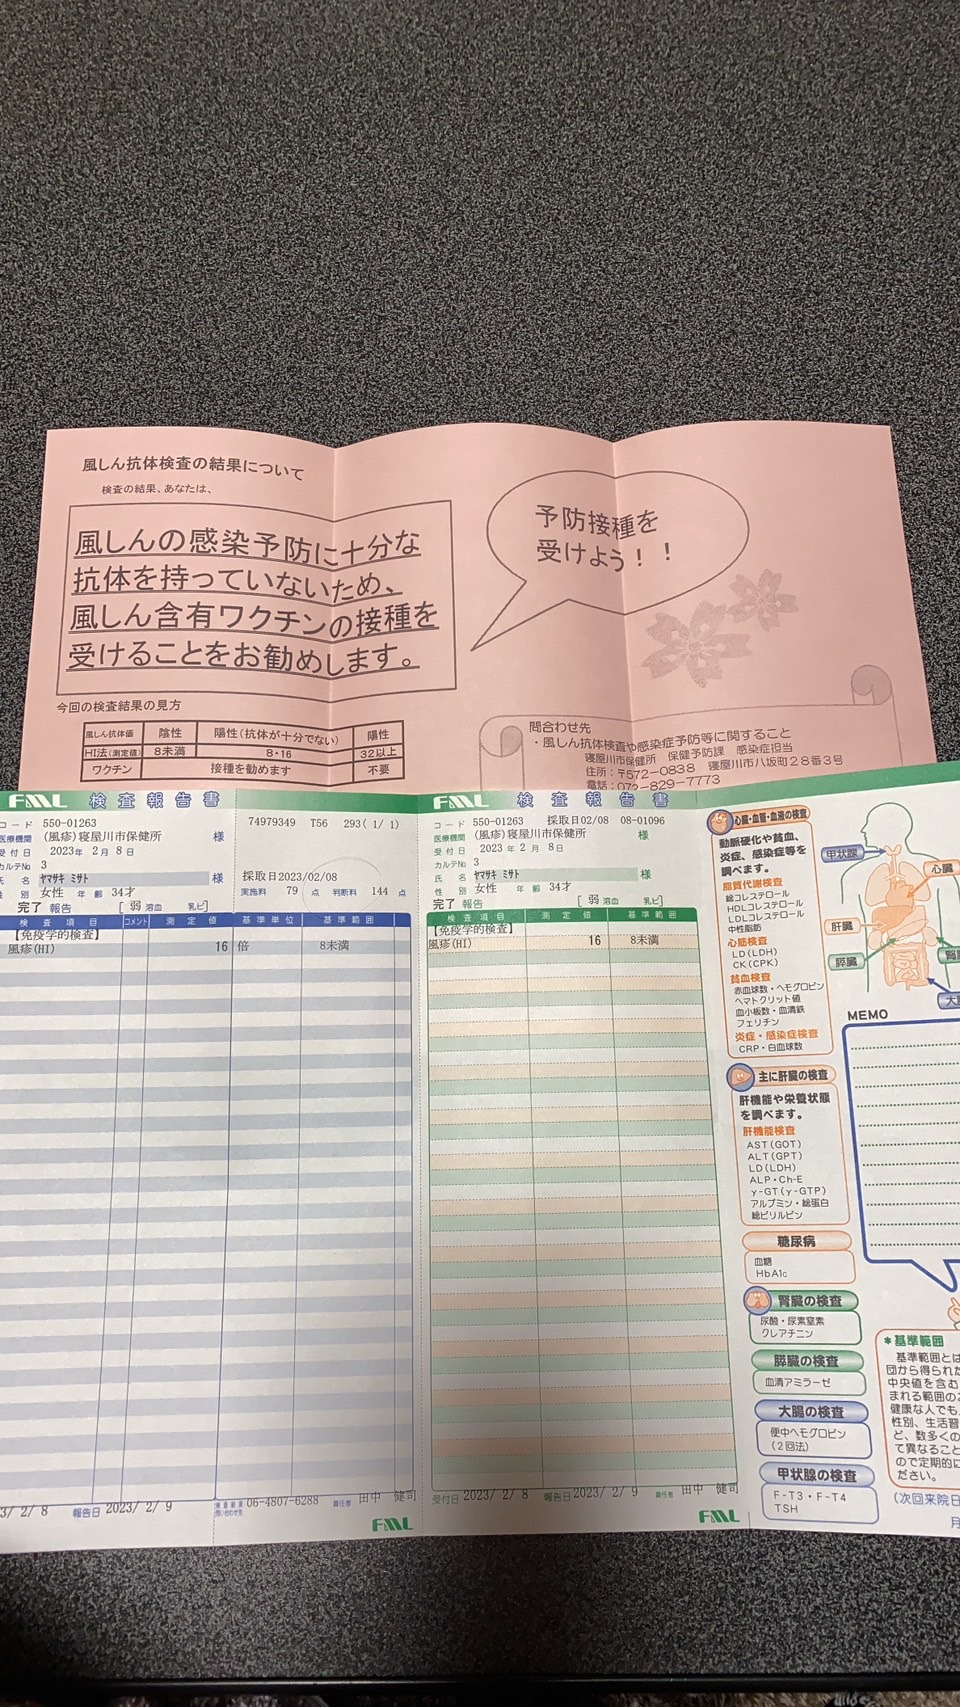 風しん抗体検査の結果について
検査の結果、あなたは、
風しんの感染予防に十分な
抗体を持っていないため、
風しん含有ワクチンの接種を
受けることをお勧めします。
予防接種を
受けよう！！
今回の検査結果の見方
風しん抗体価 陰性 陽性(抗体が十分でない) 陽性
HI法(測定値) 8未満 8・16 32以上
ワクチン 接種を勧めます 不要
問合わせ先
・風しん抗体検査や感染症予防等に関すること
寝屋川市保健所 保健予防課 感染症担当
住所：〒572－0838 寝屋川市八坂町28番3号
電話：072－829－7773
FML 検査報告書
コード 550-01263
医療機関 (風疹)寝屋川市保健所 様
受付日 2023年 2月 8日
カルテNo 3
氏名 ヤマサキ ミサト 様
性別 女性 年齢 34才
完了 報告 [ 弱 溶血 乳ビ]
74979349 T56 293( 1/ 1)
採取日2023/02/08
実施料 79 点 判断料 144 点
検査項目 コメント 測定値 基準単位 基準範囲
【免疫学的検査】
風疹(HI) 16 倍 8未満
3/ 2/ 8 報告日 2023/ 2/ 9 06-4807-6288 責任者 田中 健司
FML
FML 検査報告書
コード 550-01263 採取日02/08 08-01096
医療機関 (風疹)寝屋川市保健所 様
受付日 2023 年 2 月 8日
カルテNo 3
氏名 ヤマサキ ミサト 様
性別 女性 年齢 34才
完了 報告 [ 弱 溶血 乳ビ]
検査項目 測定値 基準範囲
【免疫学的検査】
風疹(HI) 16 8未満
受付日 2023/ 2/ 8 報告日 2023/ 2/ 9 責任者 田中 健司
FML
心臓・血管・血液の検査
動脈硬化や貧血、
炎症、感染症等を
調べます。
脂質代謝検査
総コレステロール
HDLコレステロール
LDLコレステロール
中性脂肪
心筋検査
LD(LDH)
CK(CPK)
貧血検査
赤血球数・ヘモグロビン
ヘマトクリット値
血小板数・血清鉄
フェリチン
炎症・感染症検査
CRP・白血球数
甲状腺
心臓
肝臓
膵臓
腎
大腸
MEMO
主に肝臓の検査
肝機能や栄養状態
を調べます。
肝機能検査
AST(GOT)
ALT(GPT)
LD(LDH)
ALP・Ch-E
γ-GT(γ-GTP)
アルブミン・総蛋白
総ビリルビン
糖尿病
血糖
HbA1c
腎臓の検査
尿酸・尿素窒素
クレアチニン
膵臓の検査
血清アミラーゼ
大腸の検査
便中ヘモグロビン
(2回法)
甲状腺の検査
F-T3・F-T4
TSH
＊基準範囲
基準範囲とは
団から得られた
中央値を含む
まれる範囲の
健康な人でも
性別、生活習
ど、数多くの
て異なること
ので定期的に
ださい。
(次回来院日
月